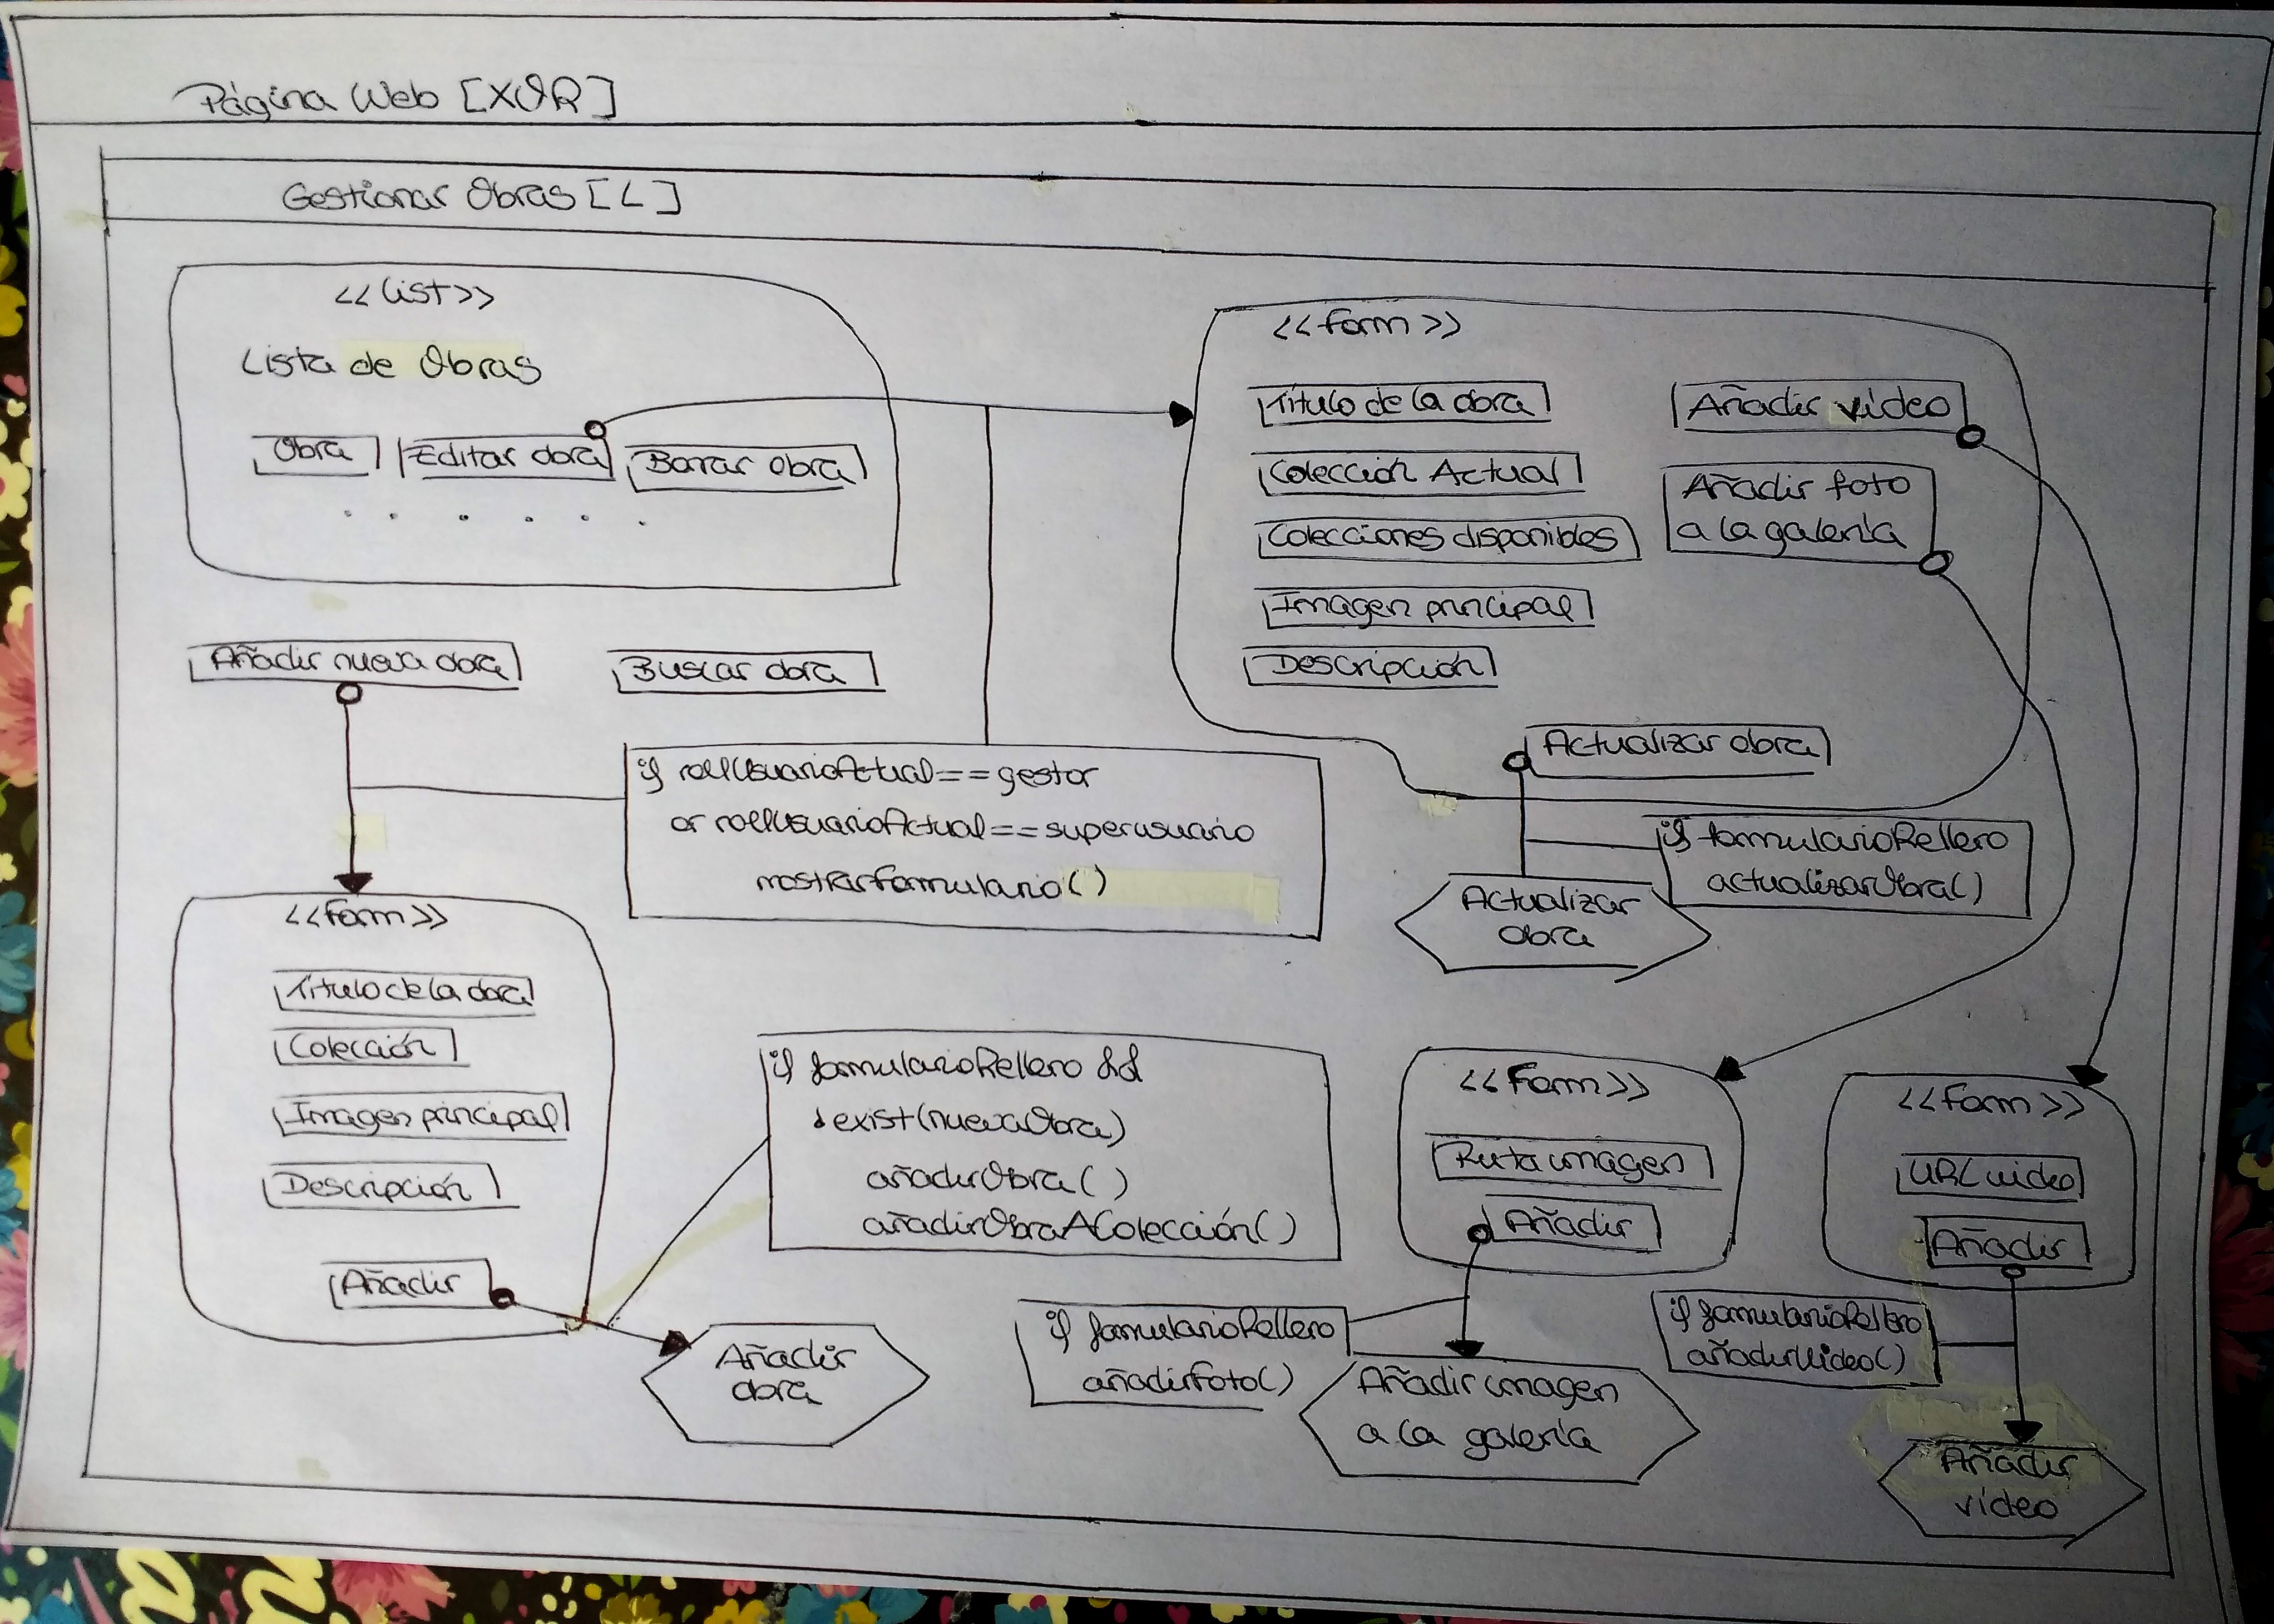 Página Web [XOR]
Gestionar Obras [L]
<<list>>
Lista de Obras
Obra
Editar obra
Borrar obra
. . . . . .
Añadir nueva obra
Buscar obra
if rollUsuarioActual==gestor
or rollUsuarioActual==superusuario
mostrarFormulario()
<<Form>>
Título de la obra
Colección Actual
Colecciones disponibles
Imagen principal
Descripción
Añadir vídeo
Añadir foto
a la galería
Actualizar obra
if formularioRelleno
actualizarObra()
Actualizar
obra
<<Form>>
Título de la obra
Colección
Imagen principal
Descripción
Añadir
if formularioRelleno &&
exist(nuevaObra)
añadirObra()
añadirObraAColección()
Añadir
obra
<<Form>>
Ruta imagen
Añadir
if formularioRelleno
añadirFoto()
Añadir imagen
a la galería
<<Form>>
URL video
Añadir
if formularioRelleno
añadirVideo()
Añadir
vídeo